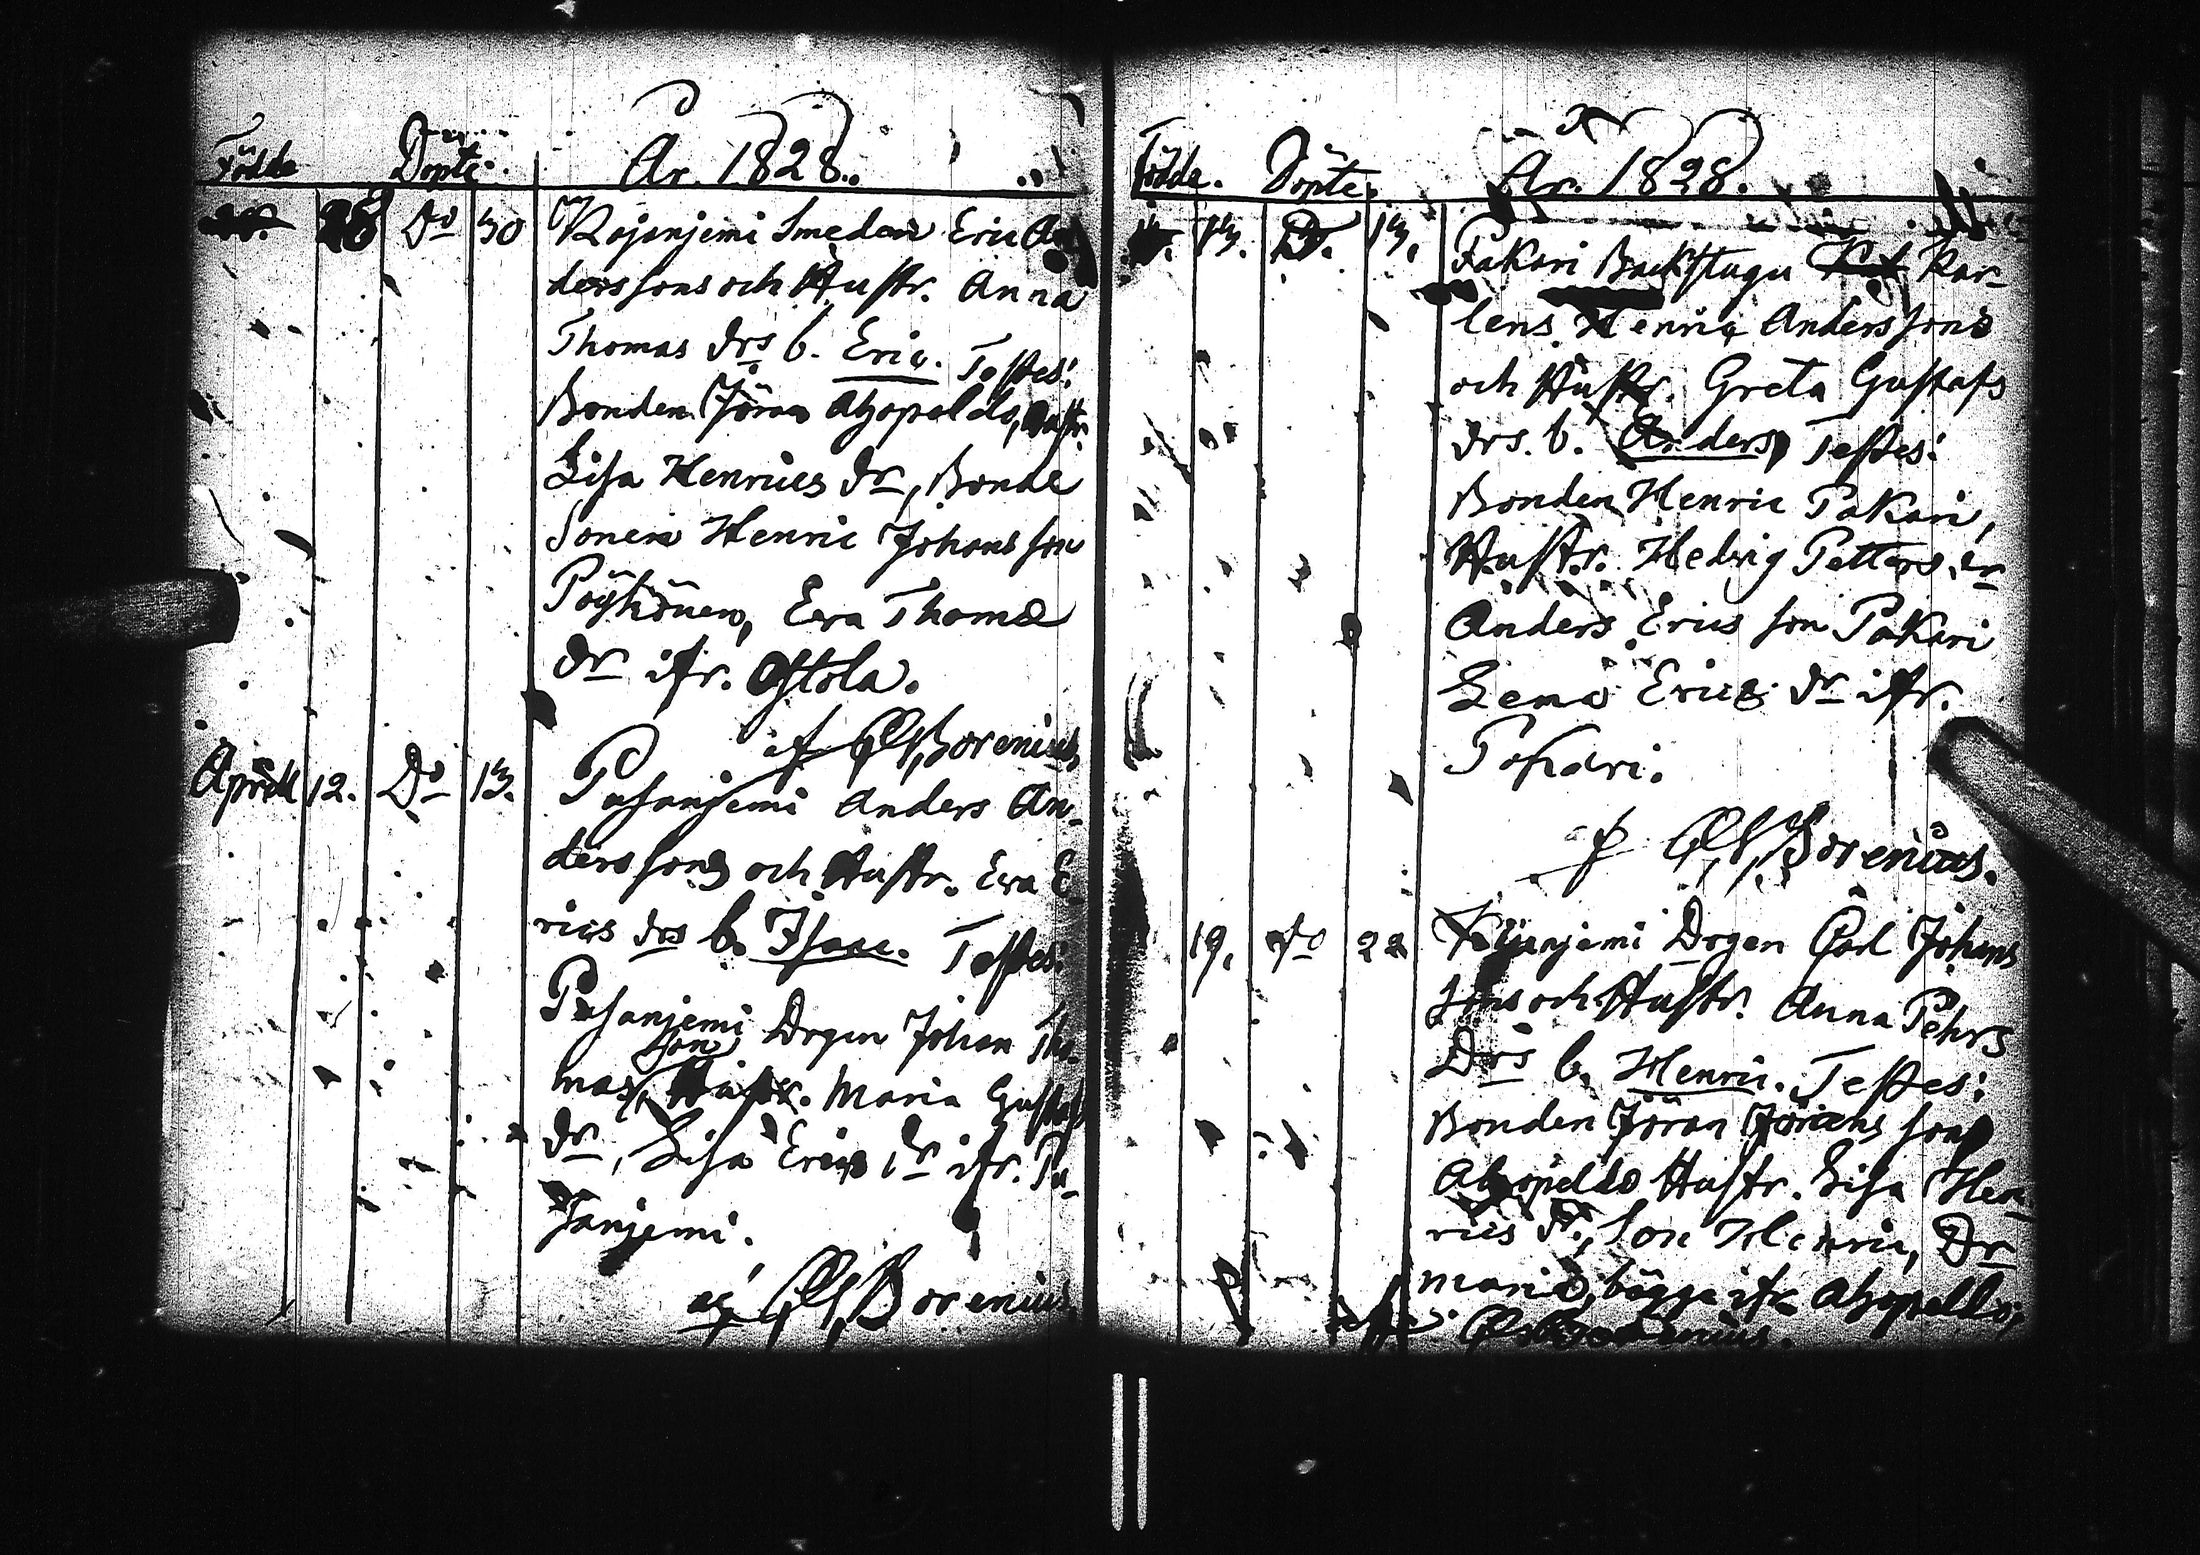 Födde Döpte. År. 1828.
28 Do 30 Kojanjemi Smeden Eric An
derssons och Hustr. Anna
Thomas drs b. Eric. Testes:
Bonden Jöran Ahopeldo, Hustr.
Lisa Henrics dr, Bonde
Sonen Henric Johansson
Pöyhönen, Eva Thomæ
dr ifr. Ostola.
af C. G. Borenius
Aprill 12. Do 13. Pusanjemi Anders An-
derssons och Hustr. Eva E
rics drs b. Isaac. Testes:
Pusanjemi Drgen Johan Tho-
son
mas, Hustr. Maria Gustafs
dr, Lisa Erics dr ifr. Pu-
sanjemi.
af C. G. Borenius
Födde. Döpte. År. 1828.
13. D. 13. Pakari Backstugu Kar-
lens Henric Anderssons
och Hustr. Greta Gustafs
drs. b. Anders, Testes:
Bonden Henric Pakari,
Hustr. Hedvig Petters dr
Anders Ericsson Pakari
Lena Erics dr ifr.
Pakari.
af C. G. Borenius.
19. Do 22 Kojanjemi Drgen Carl Johans
sons och Hustr. Anna Pehrs
Drs b. Henric. Testes:
Bonden Jöran Jöransson
Ahopeldo Hustr. Lisa Hen-
rics dr, Son Henric, Dr
Maria, bägge ifr Ahopeldo;
Borenius.